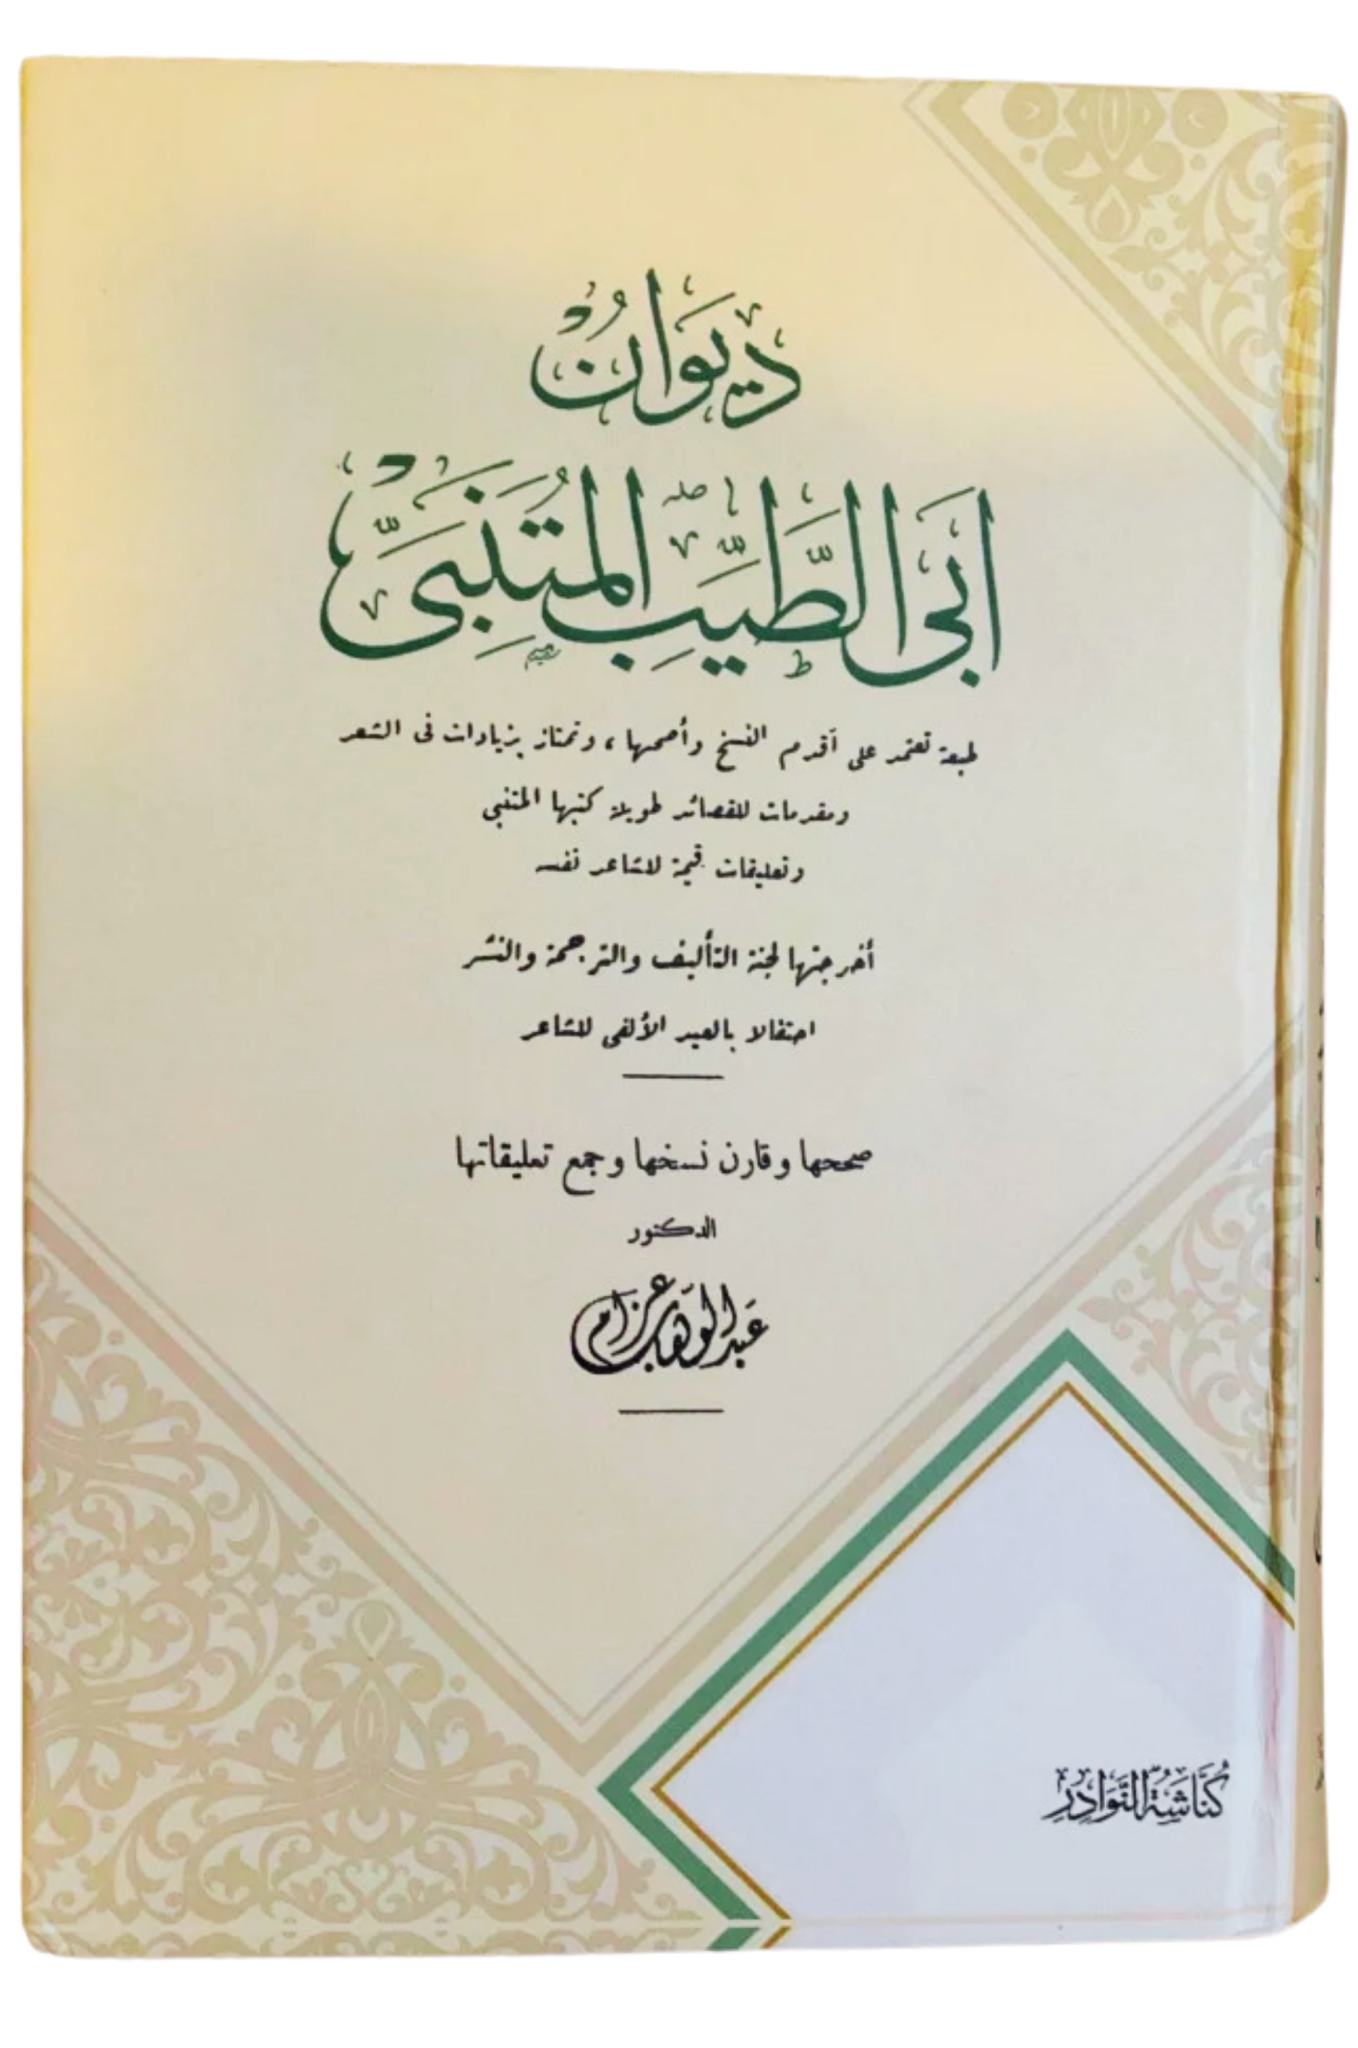 ديوان
أبي الطيب المتنبي
طبعة تعتمد على أقدم النسخ وأصحها، وتمتاز بزيادات فى الشعر
ومقدمات للقصائد طويلة كتبها المتنبى
وتعليقات قيمة للشاعر نفسه
أخرجتها لجنة التأليف والترجمة والنشر
احتفالا بالعيد الألفى للشاعر
صححها وقارن نسخها وجمع تعليقاتها
الدكتور
عبد الوهاب عزام
كُنَّاشَةُ النَّوَادِرِ